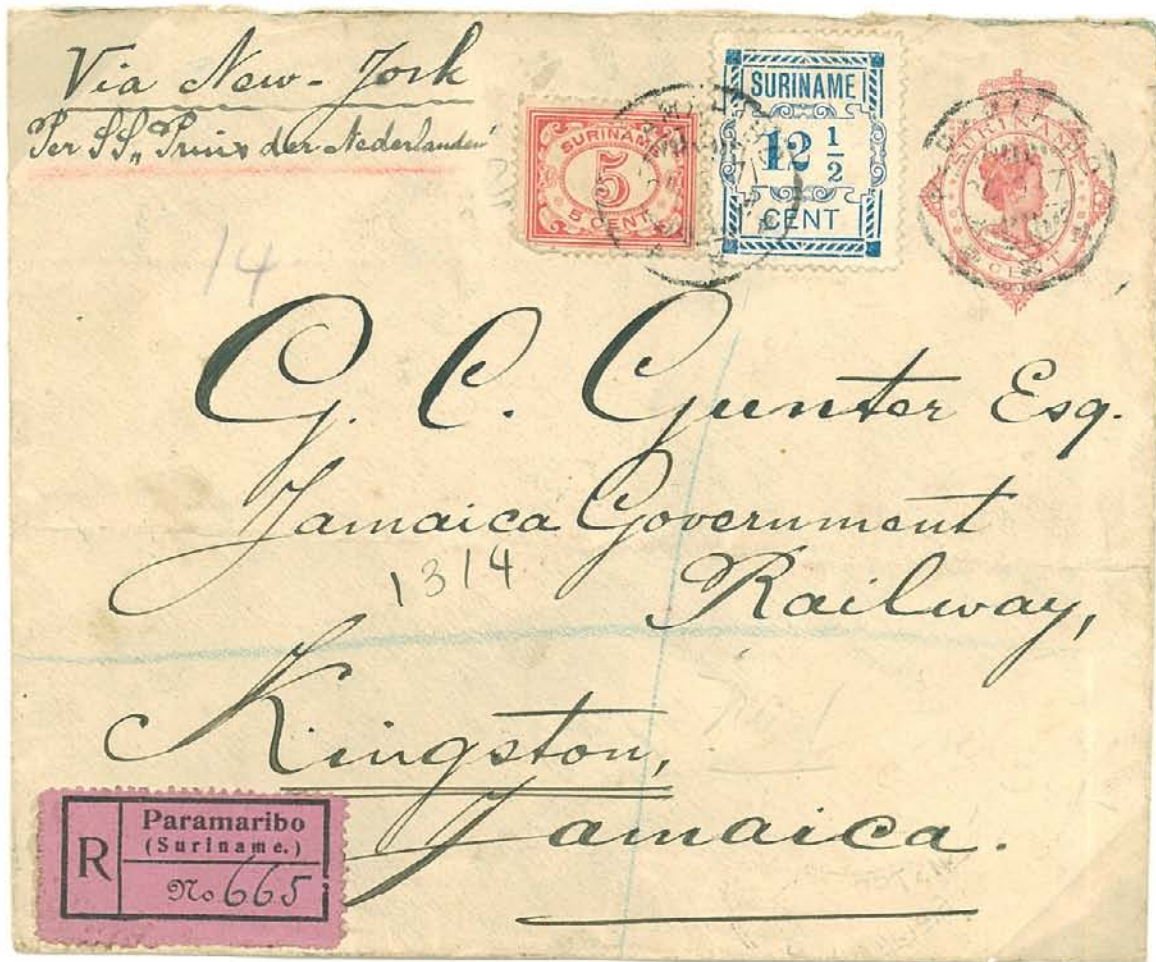 Via New-York
Per SS „Prins der Nederlanden"
SURINAME
5
5 CENT
SURINAME
12 1/2
CENT
SURINAME
CENT
14
G. C. Gunter Esq.
Jamaica Government
1314
Railway,
Kingston,
Jamaica.
R
Paramaribo
(Suriname.)
No 665